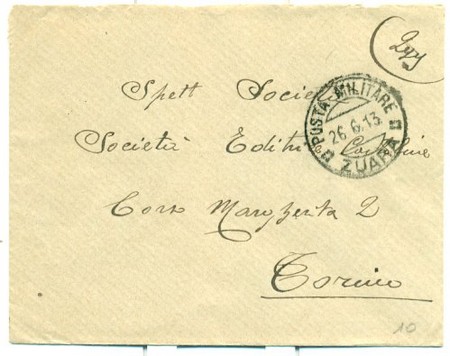 Spett Socie
Società Editrice Cartoline
Corso Margherita 2
Torino
POSTA MILITARE
26.6.13
ZUARA
10